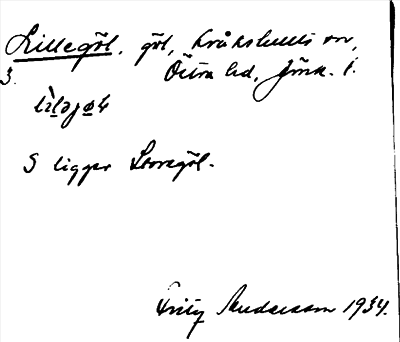 Lillegöl, göl, Kråkshults sn,
3. Östra hd, Jönk. l.
lìləjøl
S ligger Storegöl.
Fritz Andersson 1934.